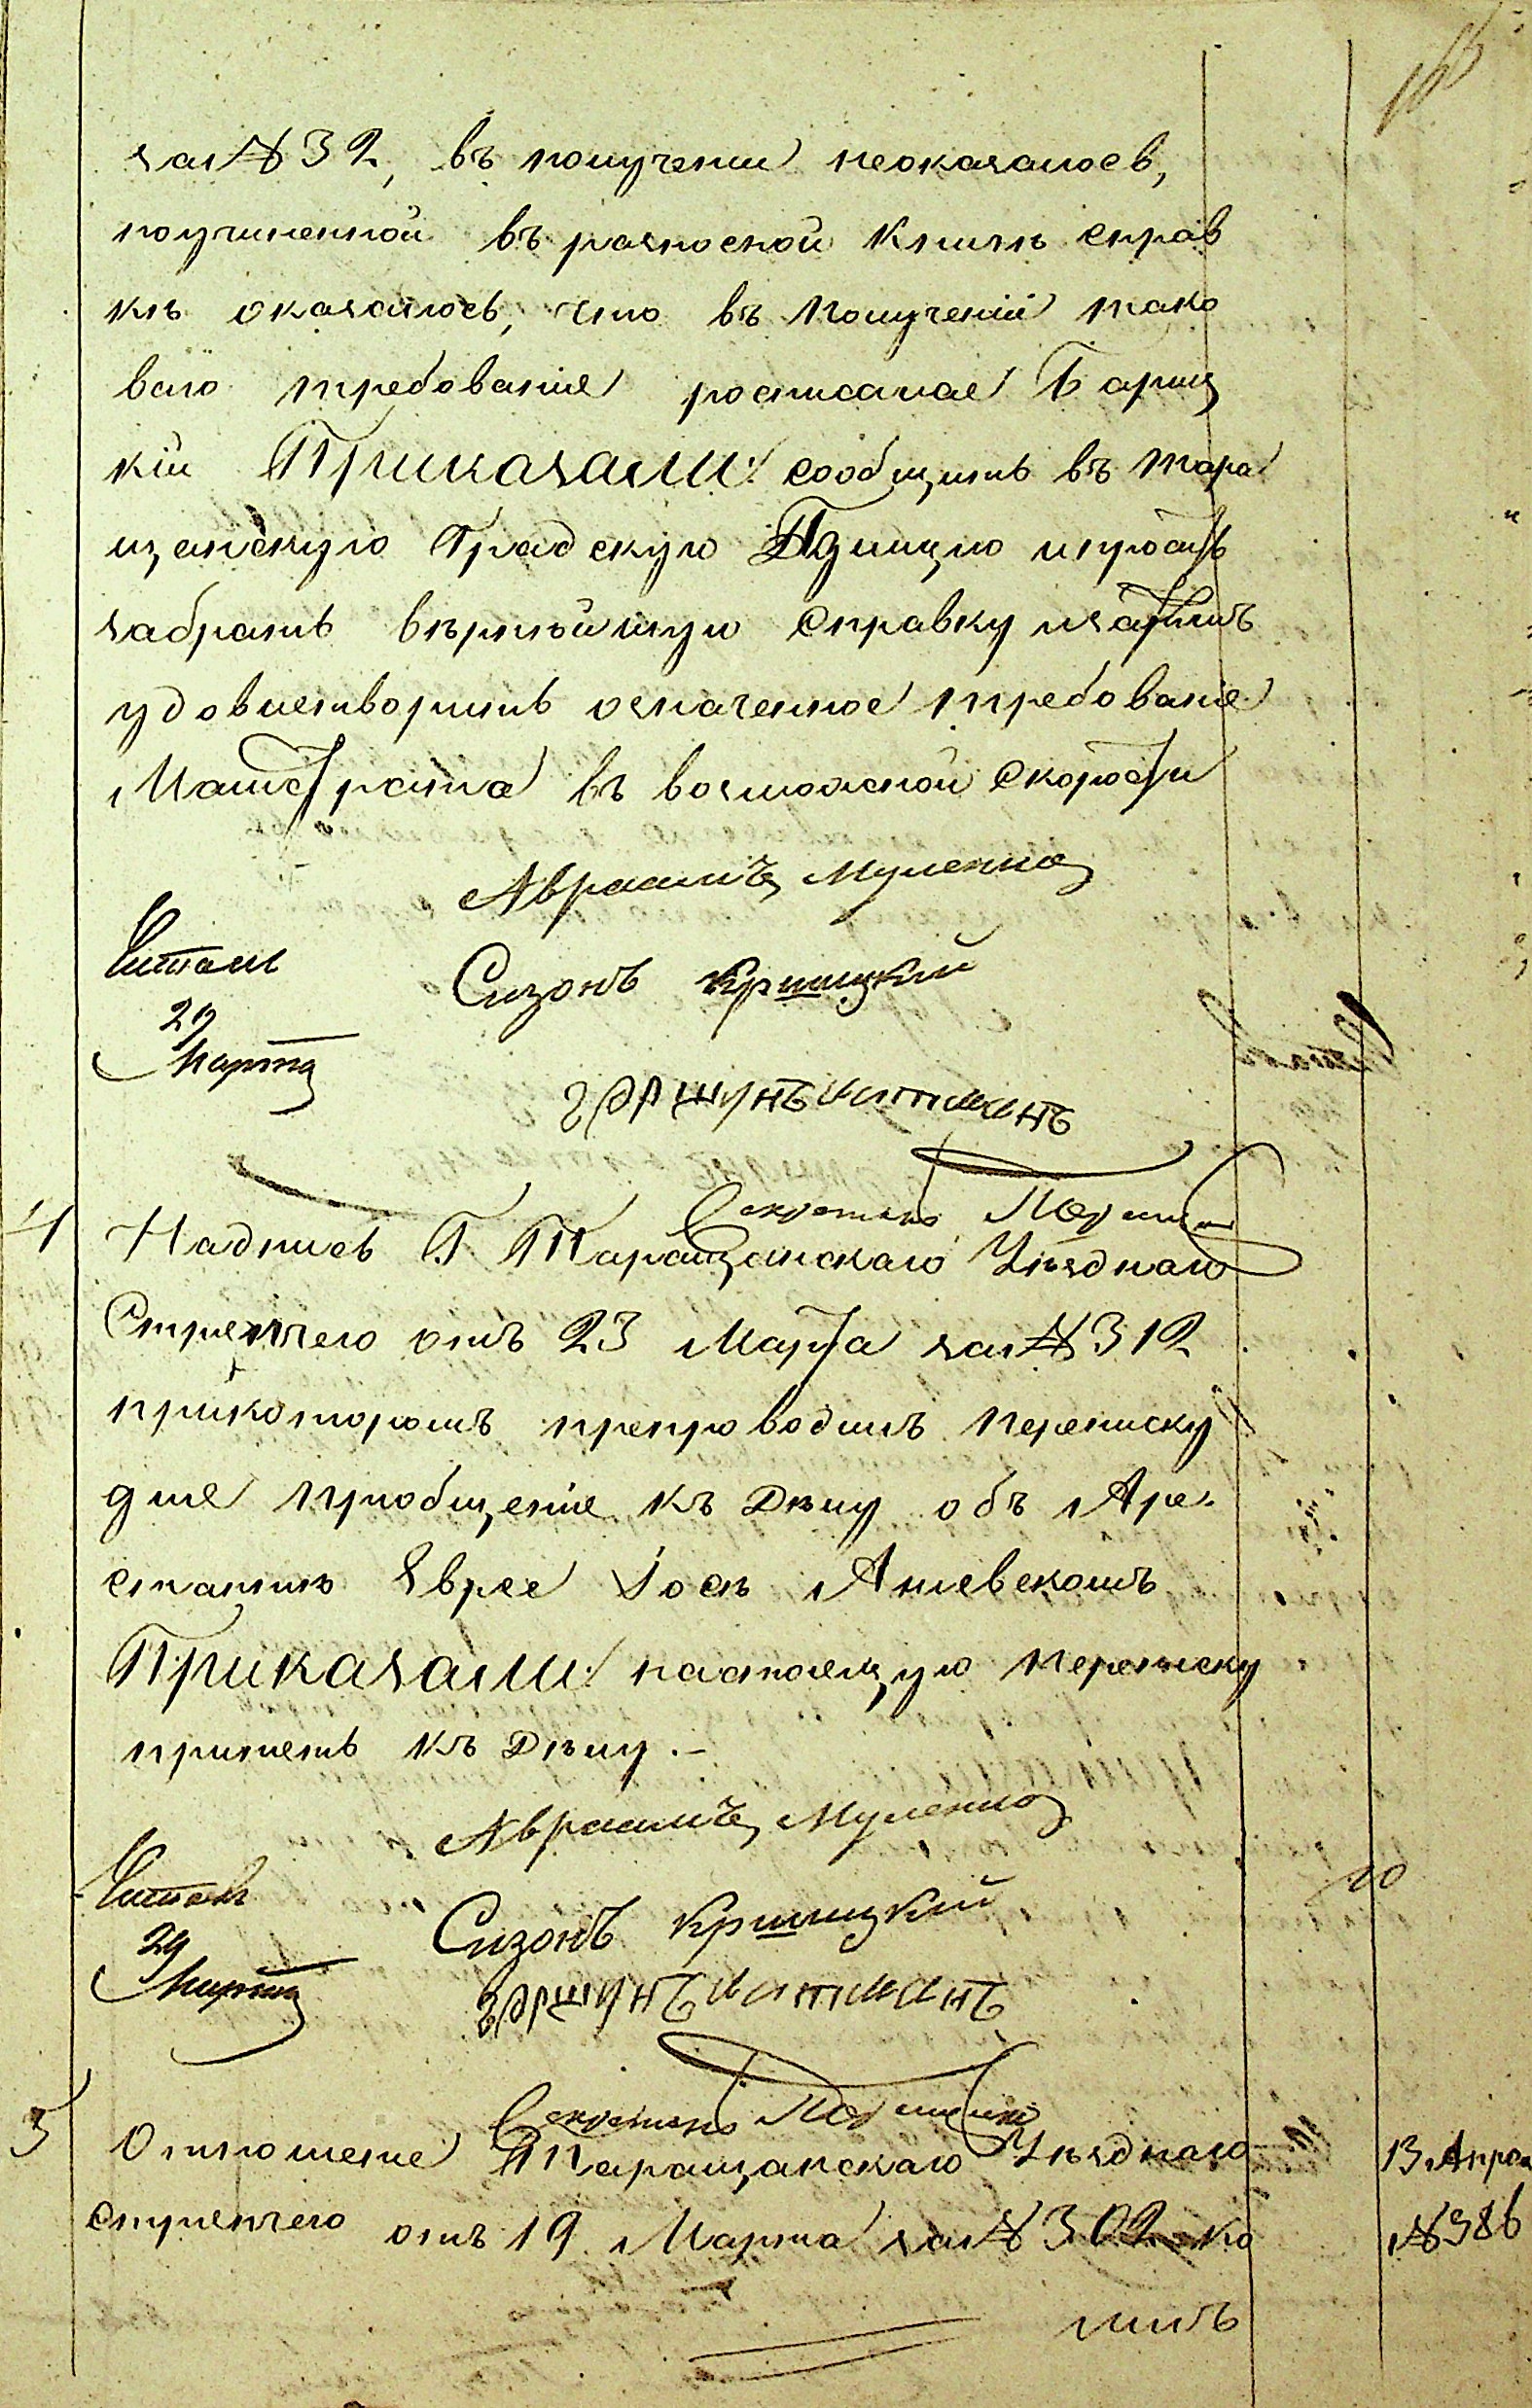 за № 32, въ полученіи неоказалось,
поучиненной въ разносной книгѣ справ
кѣ оказалось, что въ полученіи тако
ваго требованія росписался Бариц
кій Приказали: сообщить въ тара
щанскую Градскую Полицію ипросить
забрать вѣрнѣйшую справку изатѣмъ
удовлетворить означенное требованіе
Магистрата въ возможной скорости
Авраамъ Муленко
Читалъ
Сизонъ Криницкій
29
Марта
Гершунъ Литманъ
Секретарь
4 Надпись Г Таращанскаго Уѣзднаго
Стряпчего отъ 23 Марта за № 312
прикоторомъ препроводилъ переписку
для пріобщенія къ Дѣлу объ Аре
стантѣ Еврее Іосѣ Аневскомъ
Приказали: настоящую переписку
пріинять къ Дѣлу.-
Авраамъ Муленко
Читалъ
Сизонъ Криницкій
29
Марта
Гершунъ Литманъ
Секретарь
5 Отношеніе Таращанскаго Уѣзднаго
Стряпчего отъ 19 Марта за № 302 ко
имъ
13 Апрел
№ 986